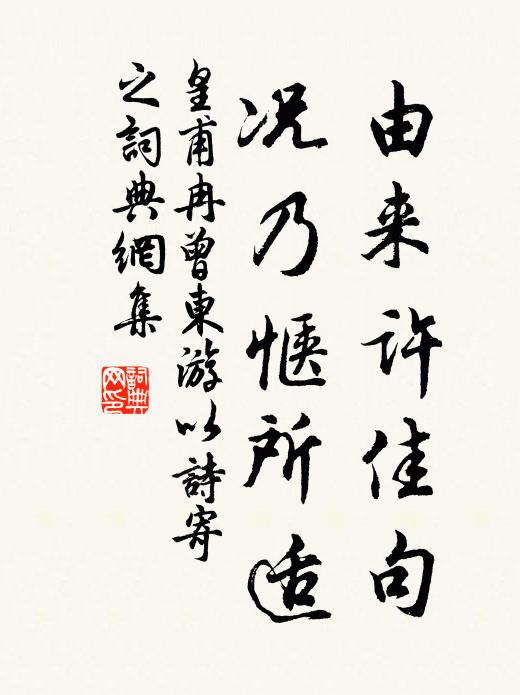 由来许佳句
况乃惬所适
皇甫冉曾東游以詩寄
之詞典網集
詞典
网印